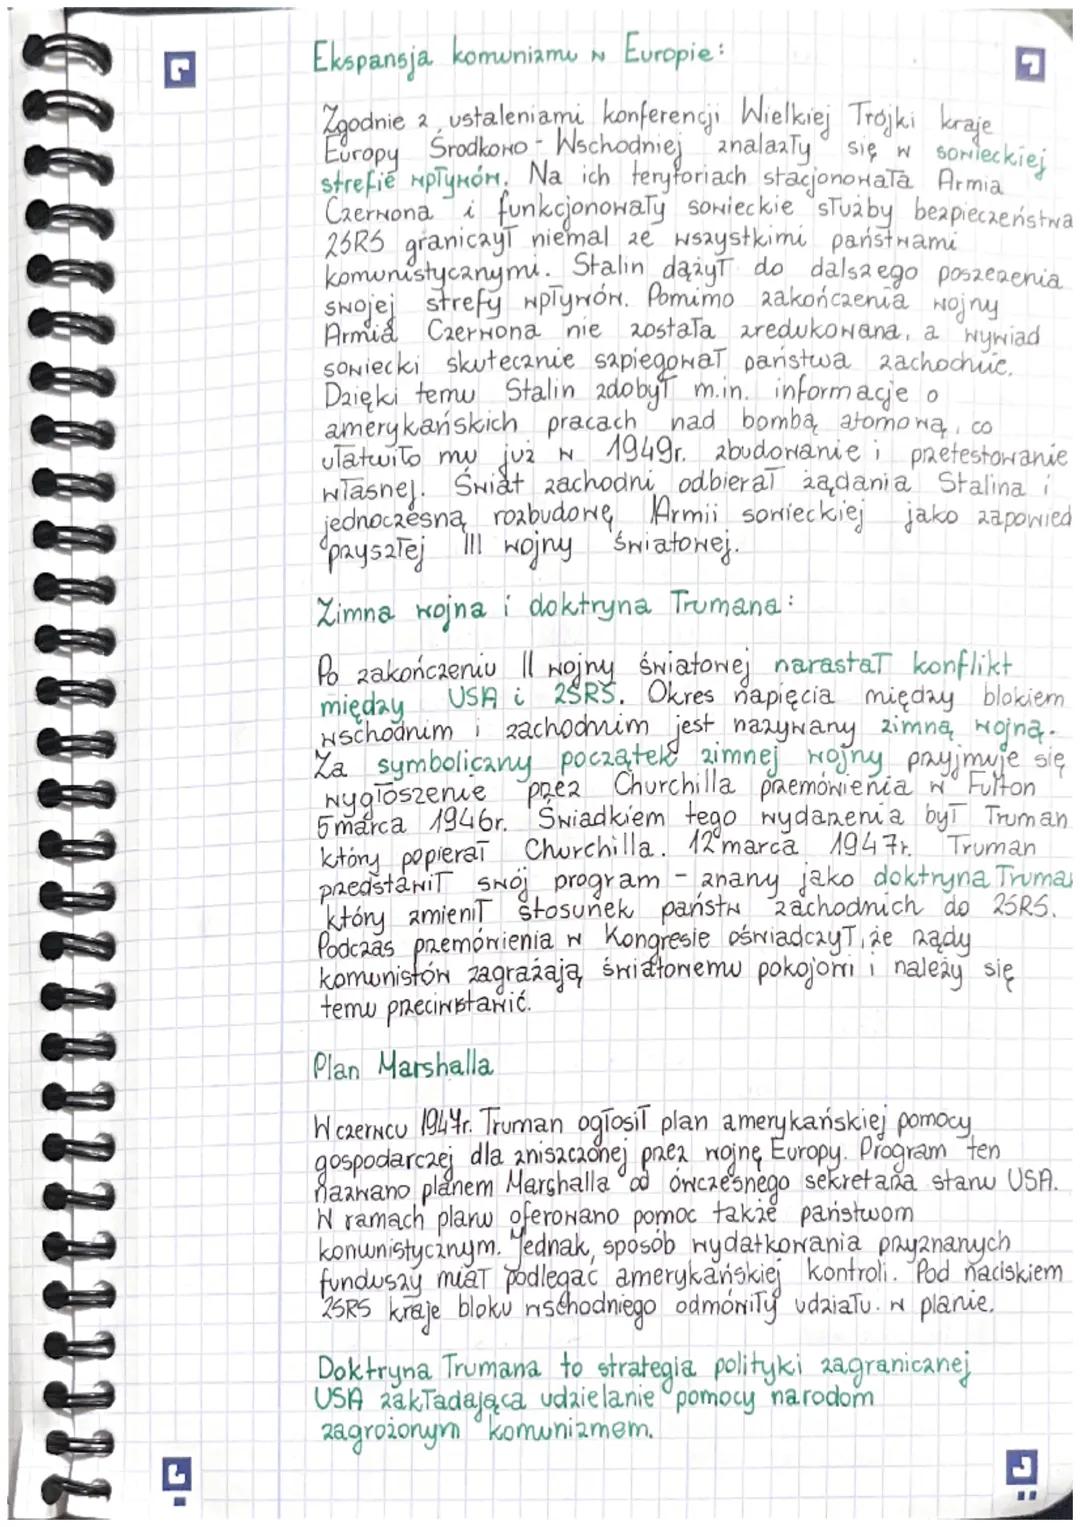 Ekspansja komunizmu w Europie:
Zgodnie z ustaleniami konferencji Wielkiej Trójki kraje
Europy Środkowo - Wschodniej znalazły się w sowieckiej
strefie wpływów. Na ich terytoriach stacjonowała Armia
Czerwona i funkcjonowały sowieckie służby bezpieczeństwa
ZSRS graniczył niemal ze wszystkimi państwami
komunistycznymi. Stalin dążył do dalszego poszerzenia
swojej strefy wpływów. Pomimo zakończenia wojny
Armia Czerwona nie została zredukowana, a wywiad
sowiecki skutecznie szpiegował państwa zachodnie.
Dzięki temu Stalin zdobył m.in. informacje o
amerykańskich pracach nad bombą atomową, co
ułatwiło mu już w 1949r. zbudowanie i przetestowanie
własnej. Świat zachodni odbierał żądania Stalina i
jednoczesną rozbudowę Armii sowieckiej jako zapowied
przyszłej III wojny światowej.
Zimna wojna i doktryna Trumana:
Po zakończeniu II wojny światowej narastał konflikt
między USA i ZSRS. Okres napięcia między blokiem
wschodnim i zachodnim jest nazywany zimną wojną.
Za symboliczny początek zimnej wojny przyjmuje się
wygłoszenie przez Churchilla przemówienia w Fulton
5 marca 1946r. Świadkiem tego wydarzenia był Truman
który popierał Churchilla. 12 marca 1947r. Truman
przedstawił swój program - znany jako doktryna Truma
który zmienił stosunek państw zachodnich do ZSRS.
Podczas przemówienia w Kongresie oświadczył, że rządy
komunistów zagrażają światowemu pokojowi i należy się
temu przeciwstawić.
Plan Marshalla
W czerwcu 1947r. Truman ogłosił plan amerykańskiej pomocy
gospodarczej dla zniszczonej przez wojnę Europy. Program ten
nazwano planem Marshalla od ówczesnego sekretarza stanu USA.
W ramach planu oferowano pomoc także państwom
komunistycznym. Jednak, sposób wydatkowania przyznanych
funduszy miał podlegać amerykańskiej kontroli. Pod naciskiem
ZSRS kraje bloku wschodniego odmówiły udziału w planie.
Doktryna Trumana to strategia polityki zagranicznej
USA zakładająca udzielanie pomocy narodom
zagrożonym komunizmem.